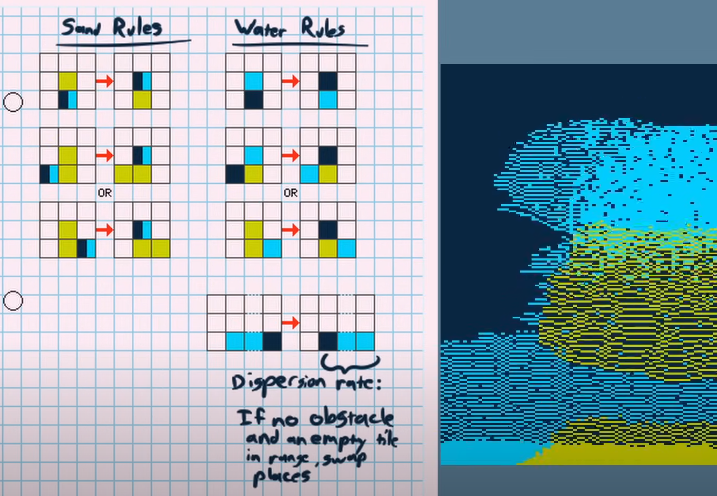 Sand Rules
Water Rules
OR
OR
Dispersion rate:
If no obstacle
and an empty tile
in range, swap
places